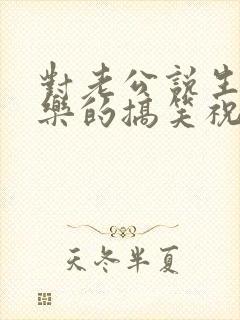 對老公說生
樂的搞笑祝
天冬半夏